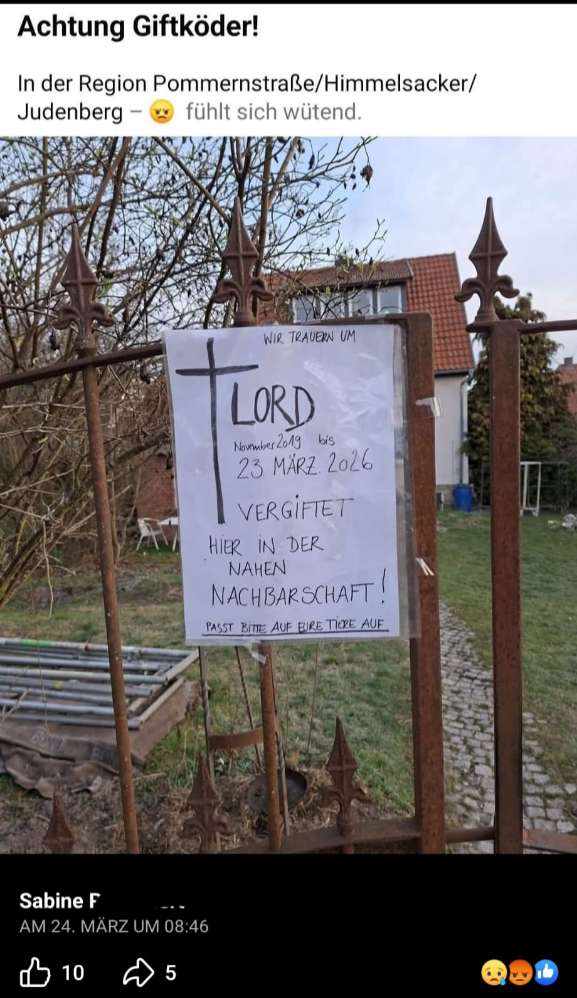 Achtung Giftköder!
In der Region Pommernstraße/Himmelsacker/
Judenberg – 😠 fühlt sich wütend.
WIR TRAUERN UM
LORD
November 2019 bis
23. MÄRZ. 2026
VERGIFTET
HIER IN DER
NAHEN
NACHBARSCHAFT!
PASST BITTE AUF EURE TIERE AUF
Sabine F
AM 24. MÄRZ UM 08:46
10
5